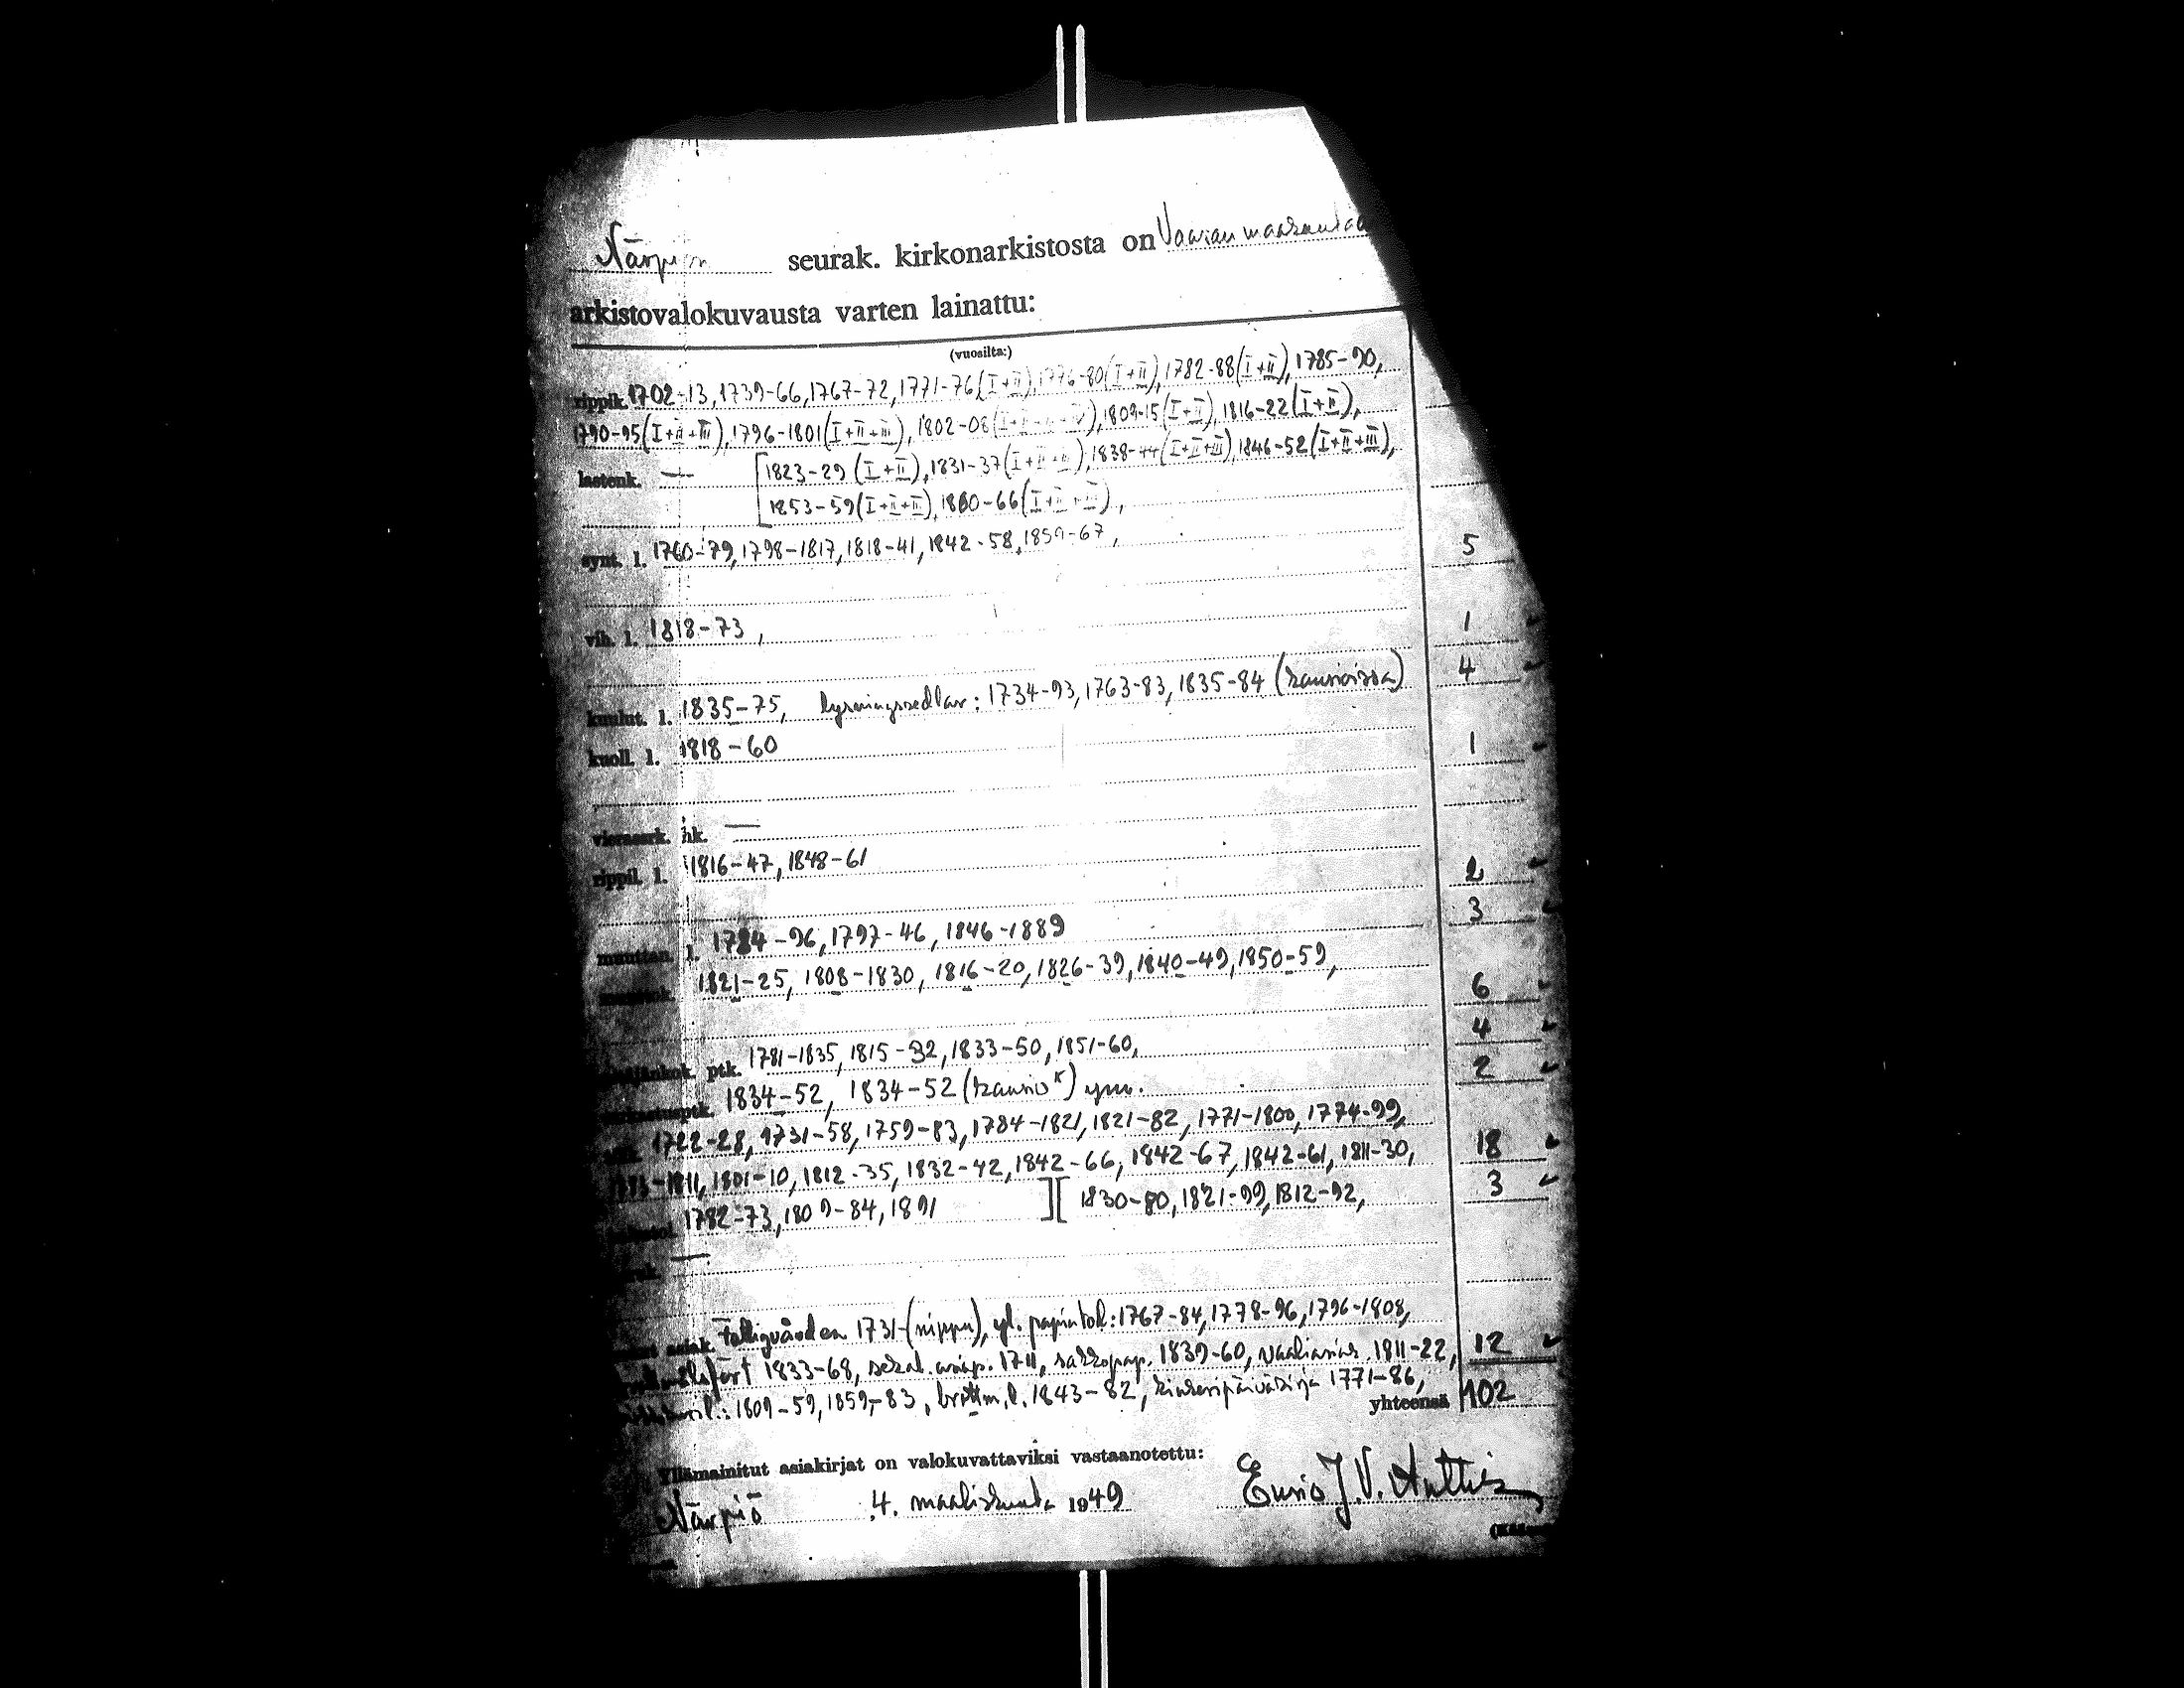 Närpiön seurak. kirkonarkistosta on Vaasan maakunta
arkistovalokuvausta varten lainattu:
(vuosilta:)
rippik. 1702-13, 1739-66, 1767-72, 1771-76 (I+II), 1776-80 (I+II), 1782-88 (I+II), 1785-90,
1790-95 (I+II+III), 1796-1801 (I+II+III), 1802-08 (I+II+III+IV), 1809-15 (I+II), 1816-22 (I+II),
lastenk. — [1823-29 (I+II), 1831-37 (I+II+III), 1838-44 (I+II+III), 1846-52 (I+II+III),
1853-59 (I+II+III), 1860-66 (I+II+III),
synt. l. 1760-79, 1798-1817, 1818-41, 1842-58, 1859-67, 5
vih. l. 1818-73, 1
kuulut. l. 1835-75, lysningssedlar: 1734-93, 1763-83, 1835-84 (kansioissa) 4
kuoll. l. 1818-60 1
vierassrk. hk. —
rippil. l. 1816-47, 1848-61 2
muuttan. l. 1784-96, 1797-46, 1846-1889 3
1821-25, 1808-1830, 1816-20, 1826-39, 1840-49, 1850-59, 6
ptk. 1781-1835, 1815-32, 1833-50, 1851-60, 4
1834-52, 1834-52 (kansio) ym. 2
1722-28, 1731-58, 1759-83, 1784-1821, 1821-82, 1771-1800, 1774-99,
1811, 1801-10, 1812-35, 1832-42, 1842-66, 1842-67, 1842-61, 1811-30, 18
1782-73, 1809-84, 1891 ][ 1830-80, 1821-99, 1812-92, 3
—
asiak. fattigvården 1731- (nippu), yl. papintod.: 1767-84, 1778-96, 1796-1808,
1833-68, sekal. asiap. 1711, sakkopap. 1839-60, vaaliasias. 1811-22, 12
1809-59, 1859-83, l. 1843-82, kinkeripäiväkirja 1771-86,
yhteensä 102
Yllämainitut asiakirjat on valokuvattaviksi vastaanotettu:
Närpiö 4. maaliskuuta 1949 Eino J. V. Anttila